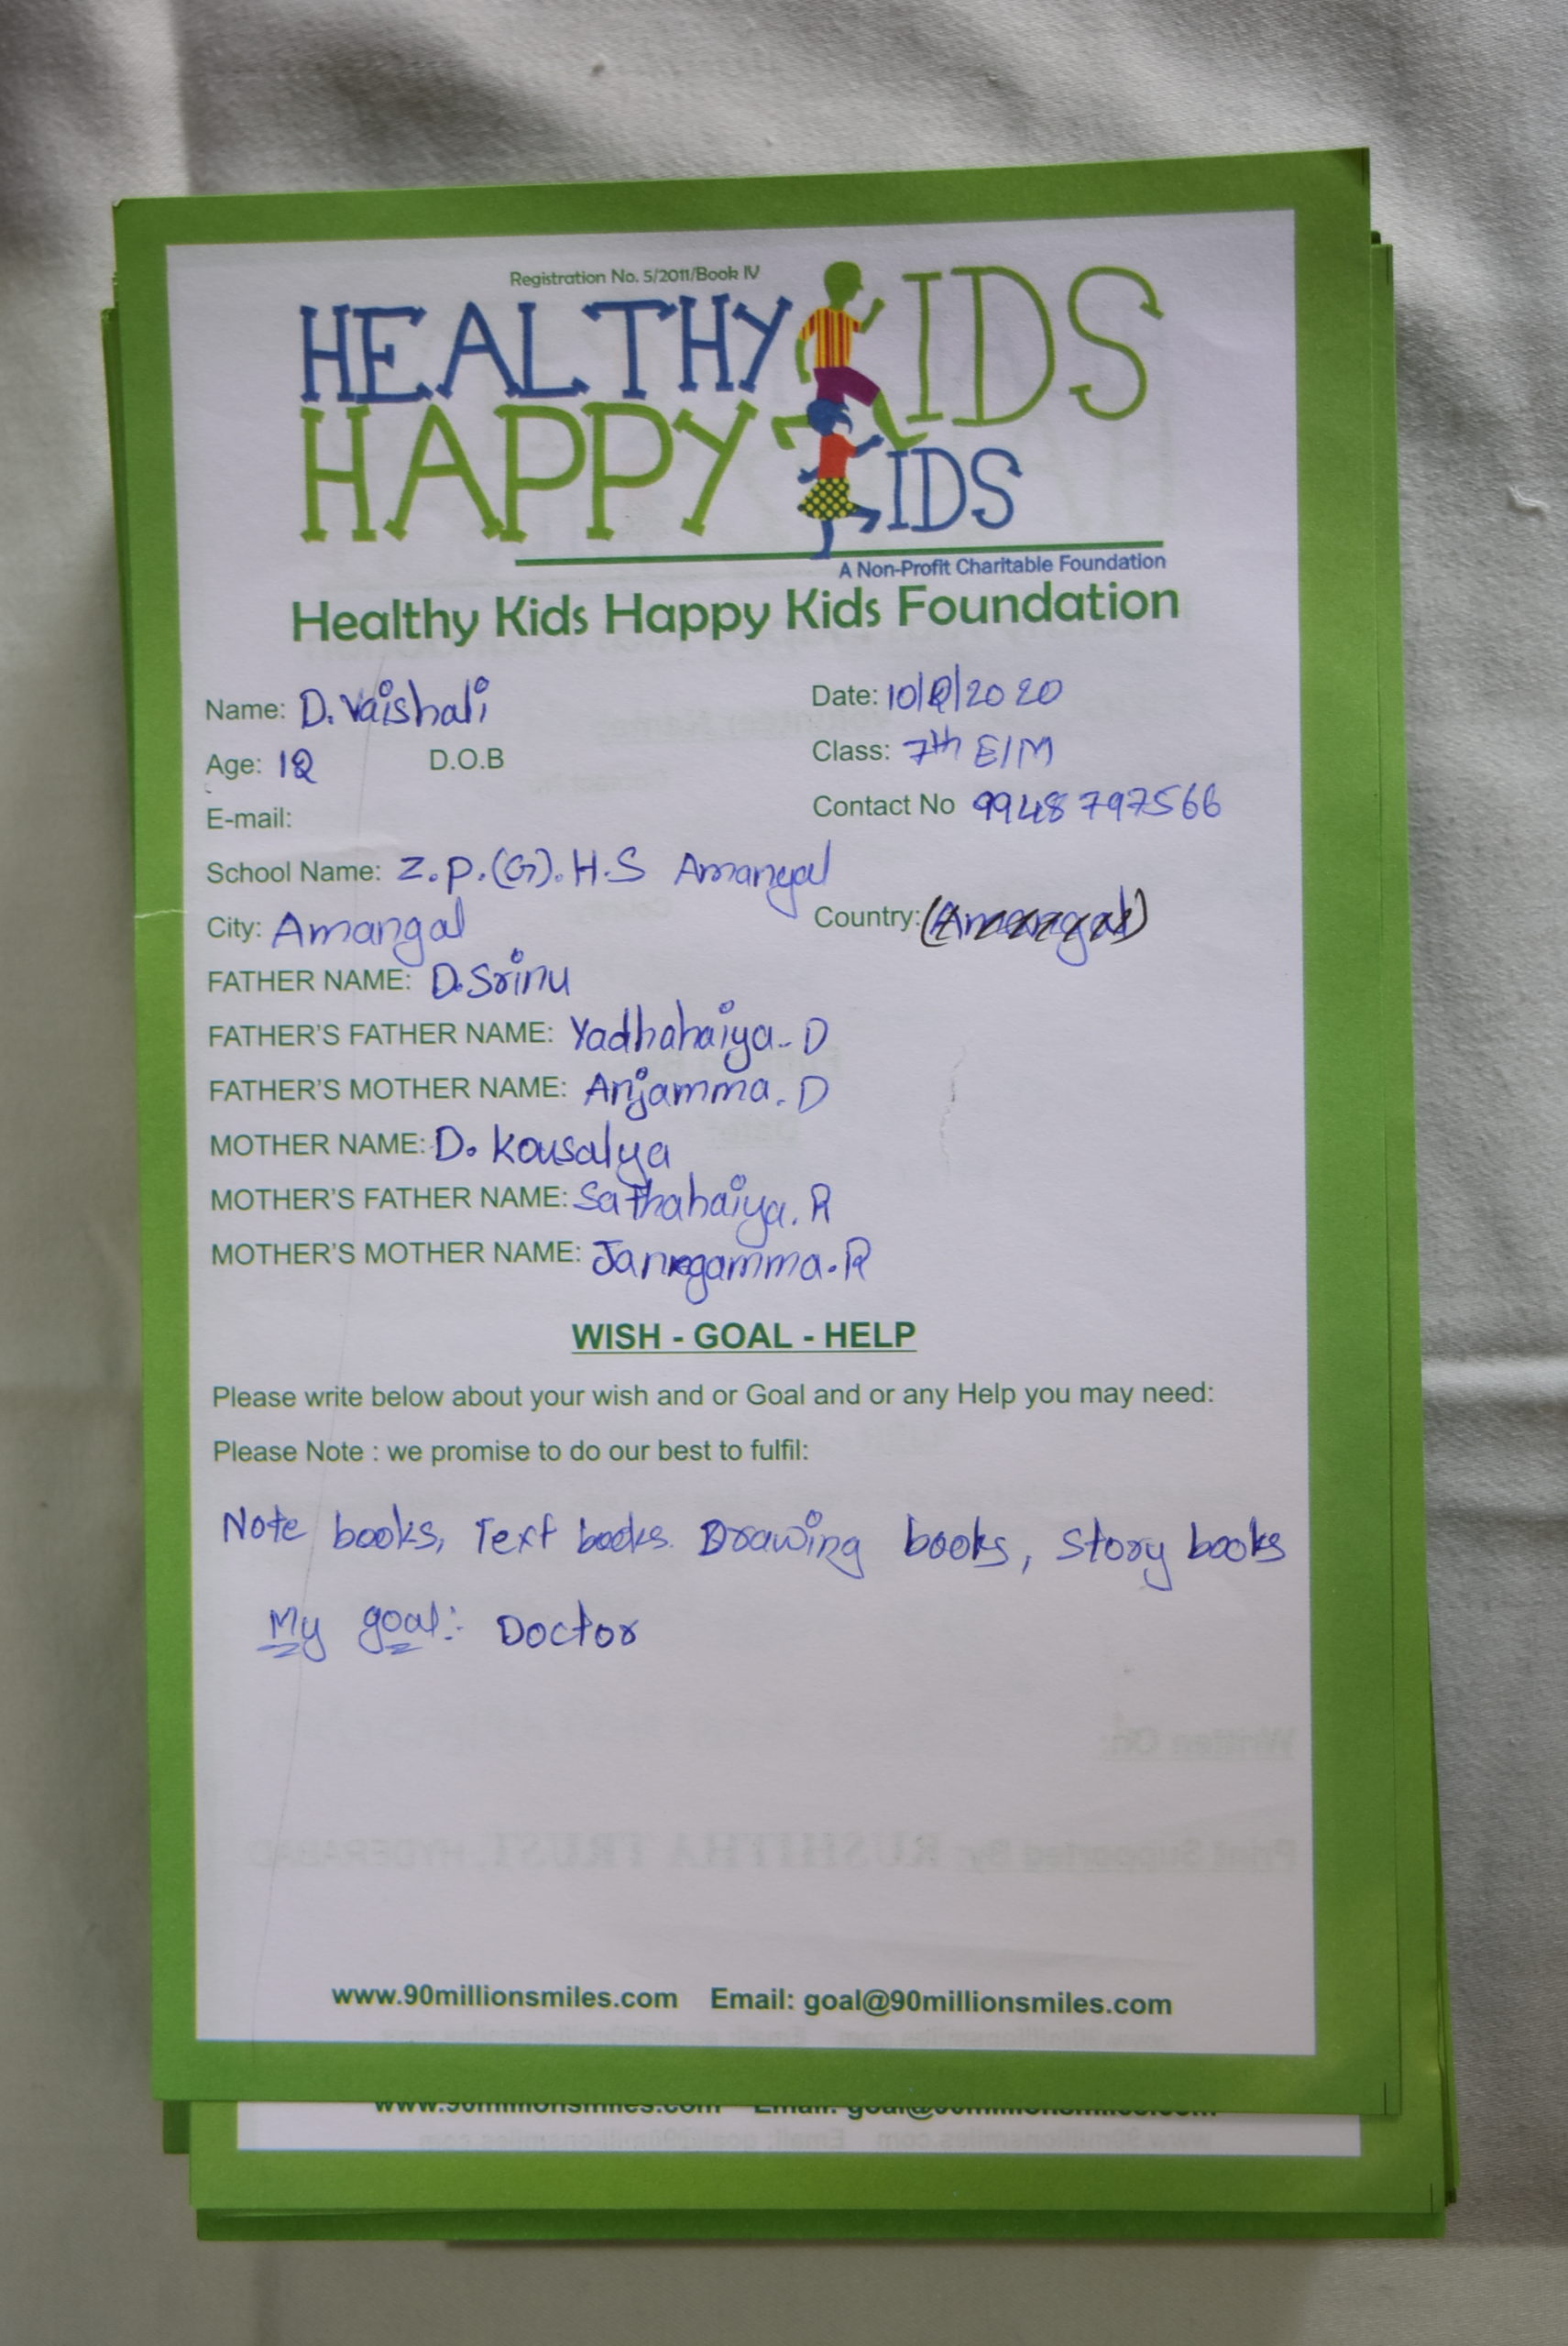 Registration No. 5/2011/Book IV
HEALTHY KIDS
HAPPY KIDS
A Non-Profit Charitable Foundation
Healthy Kids Happy Kids Foundation
Name: D. Vaishali Date: 10/2/2020
Age: 12 D.O.B Class: 7th E/M
E-mail: Contact No 9948797566
School Name: Z.P.(G).H.S Amangal
City: Amangal Country: (Amangal)
FATHER NAME: D. Srinu
FATHER'S FATHER NAME: Yadhahaiya. D
FATHER'S MOTHER NAME: Anjamma. D
MOTHER NAME: D. Kousalya
MOTHER'S FATHER NAME: Sathahaiya. R
MOTHER'S MOTHER NAME:
WISH - GOAL - HELP
Please write below about your wish and or Goal and or any Help you may need:
Please Note : we promise to do our best to fulfil:
Note books, Text books. Drawing books, Story books
My goal:- Doctor
Written On:
Print Supported By: RUSHITHA TRUST, HYDERABAD
www.90millionsmiles.com Email: goal@90millionsmiles.com
www.90millionsmiles.com Email: goal@90millionsmiles.com